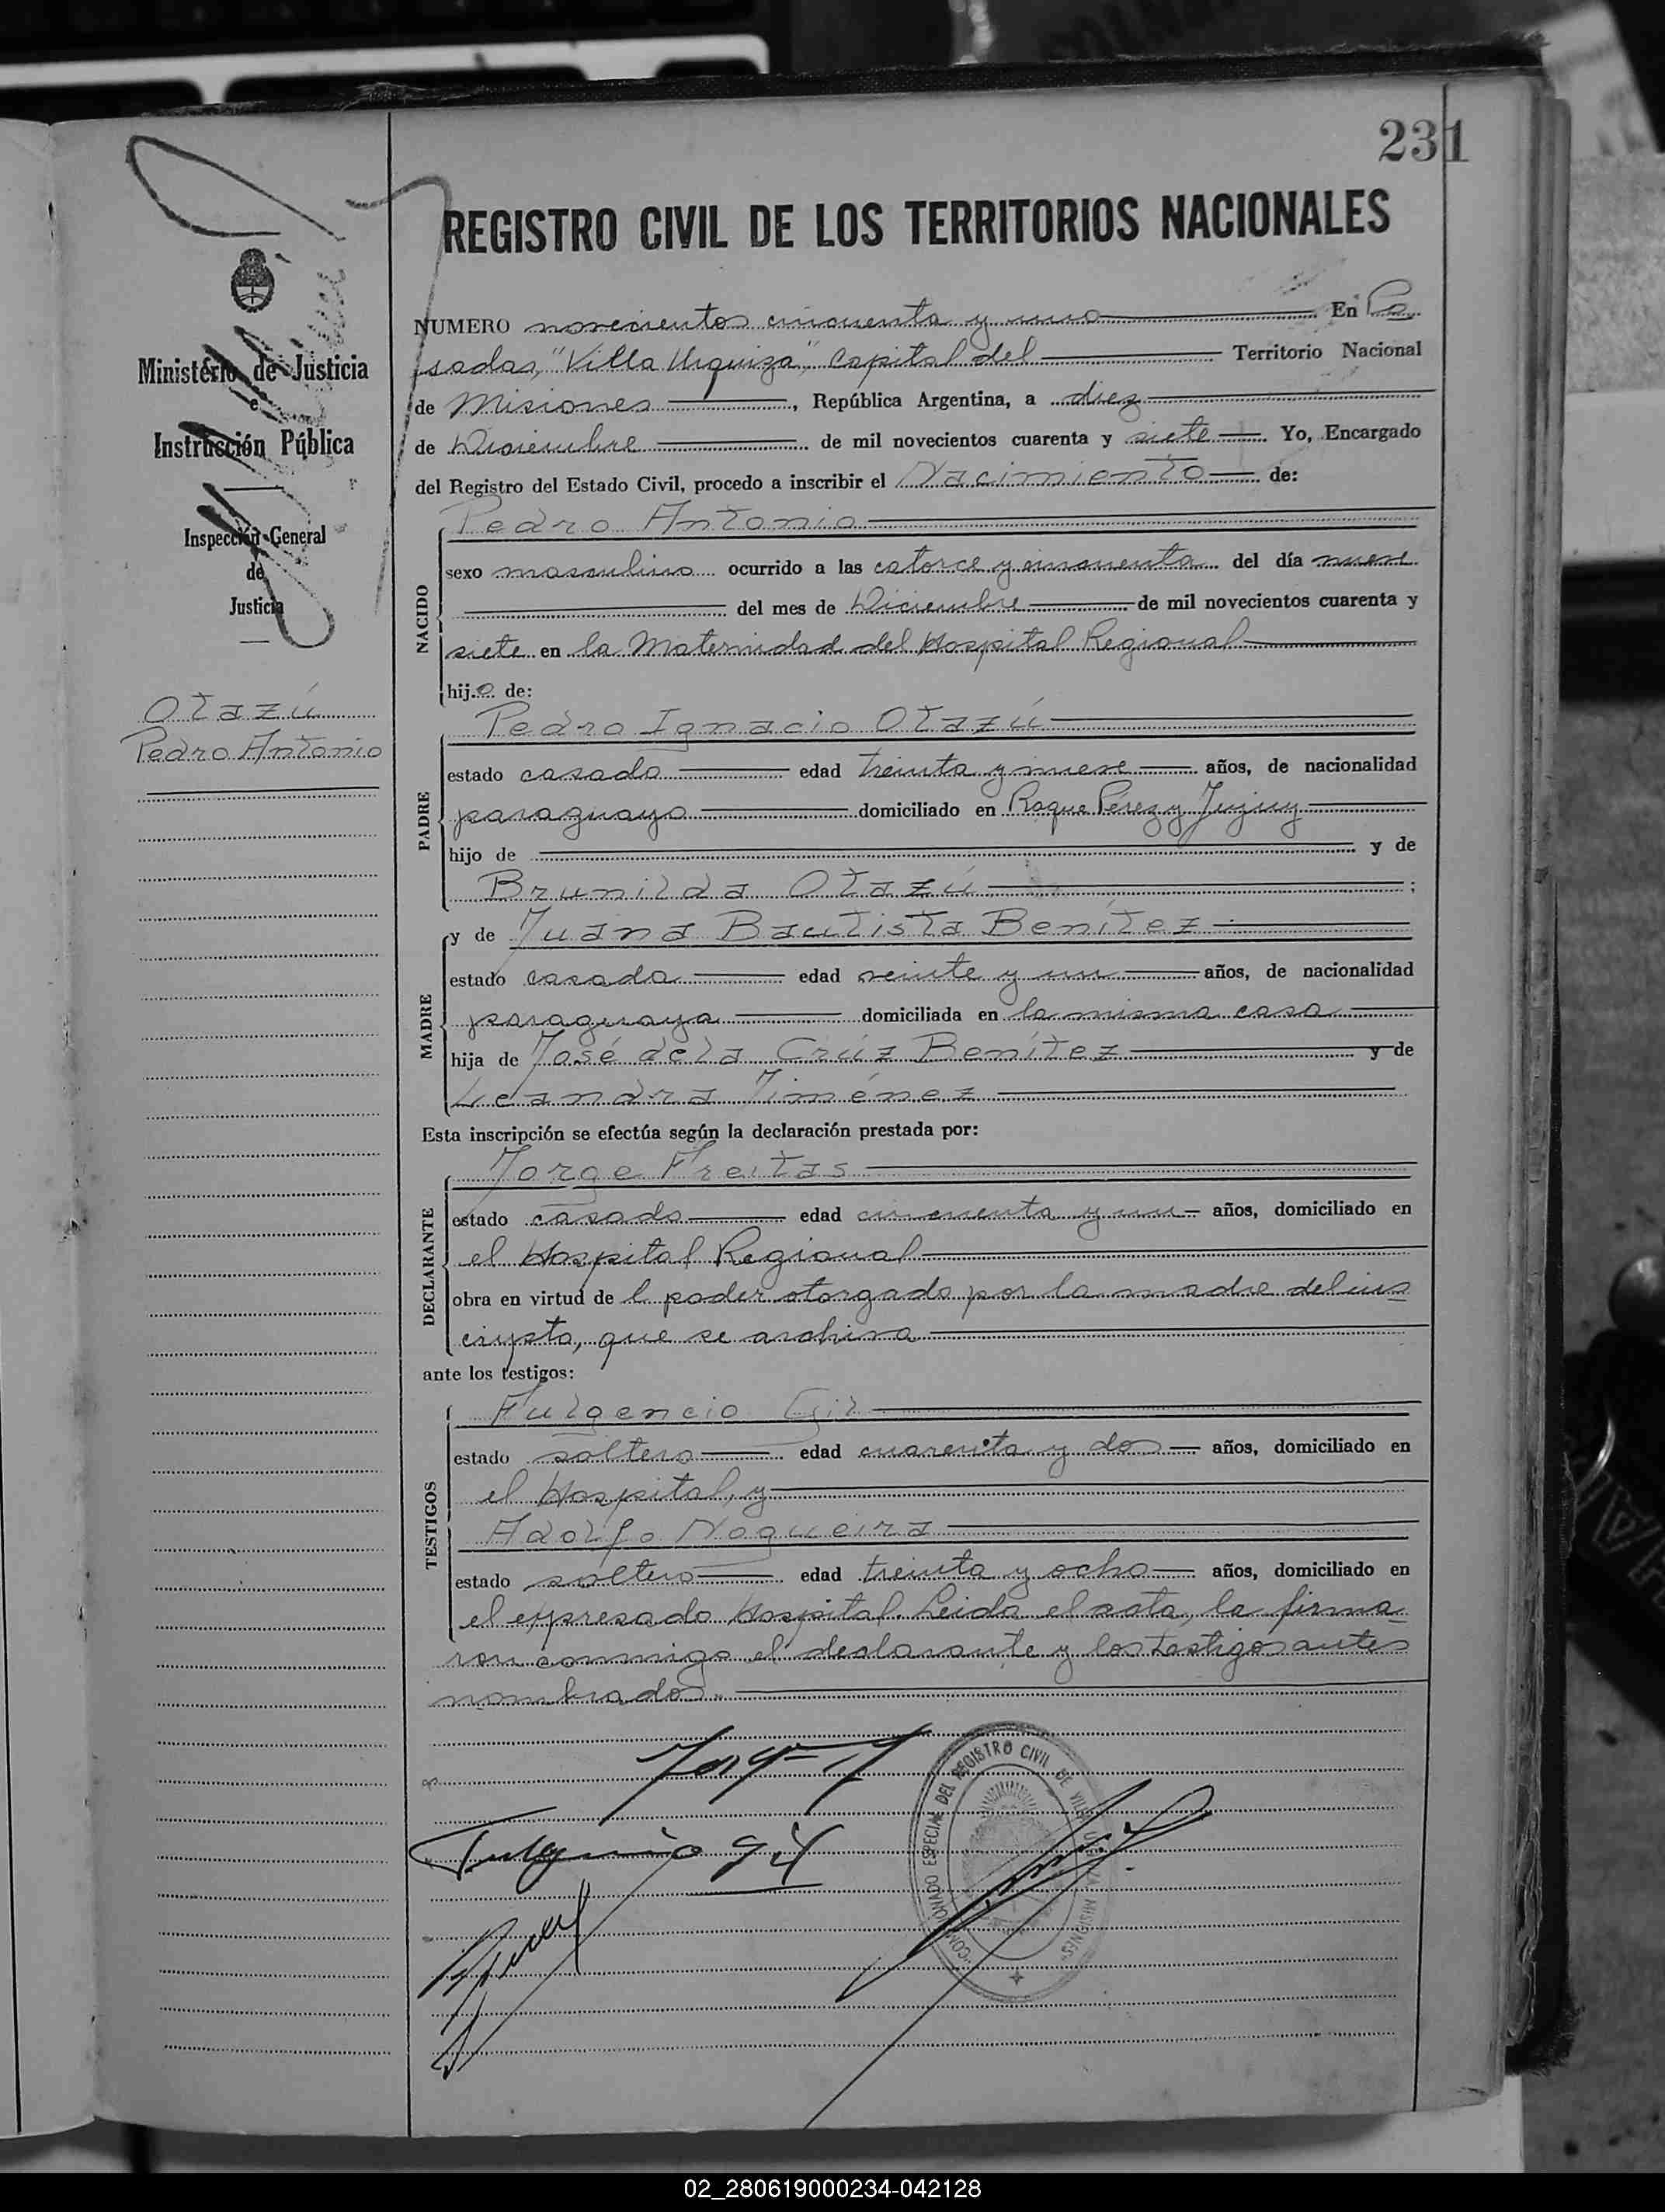 231
REGISTRO CIVIL DE LOS TERRITORIOS NACIONALES
Ministerio de Justicia
e
Instrucción Pública
Inspección General
de
Justicia
Otazú
Pedro Antonio
NUMERO novecientos cincuenta y uno En Po
sadas, "Villa Urquiza", Capital del Territorio Nacional
de Misiones, República Argentina, a diez
de Diciembre de mil novecientos cuarenta y siete Yo, Encargado
del Registro del Estado Civil, procedo a inscribir el Nacimiento de:
NACIDO
Pedro Antonio
sexo masculino ocurrido a las catorce y cincuenta del día nueve
del mes de Diciembre de mil novecientos cuarenta y
siete en la Maternidad del Hospital Regional
hijo de:
PADRE
Pedro Ignacio Otazú
estado casado edad treinta y nueve años, de nacionalidad
paraguayo domiciliado en Roque Pérez y Jujuy
hijo de y de
Brunilda Otazú ;
MADRE
y de Juana Bautista Benítez
estado casada edad veinte y un años, de nacionalidad
paraguaya domiciliada en la misma casa
hija de José de la Crúz Benítez y de
Leandra Jiménez
Esta inscripción se efectúa según la declaración prestada por:
DECLARANTE
Jorge Freitas
estado casado edad cincuenta y un años, domiciliado en
el Hospital Regional
obra en virtud de l poder otorgado por la madre del ins
cripto, que se archiva
ante los testigos:
TESTIGOS
Fulgencio Gil
estado soltero edad cuarenta y dos años, domiciliado en
el Hospital, y
Adolfo Nogueira
estado soltero edad treinta y ocho años, domiciliado en
el expresado Hospital. Leida el acta, la firma=
ron conmigo el declarante y los testigos antes
nombrados.
Fulgencio Gil
COMISIONADO ESPECIAL DEL REGISTRO CIVIL DE VILLA URQUIZA MISIONES
02_280619000234-042128